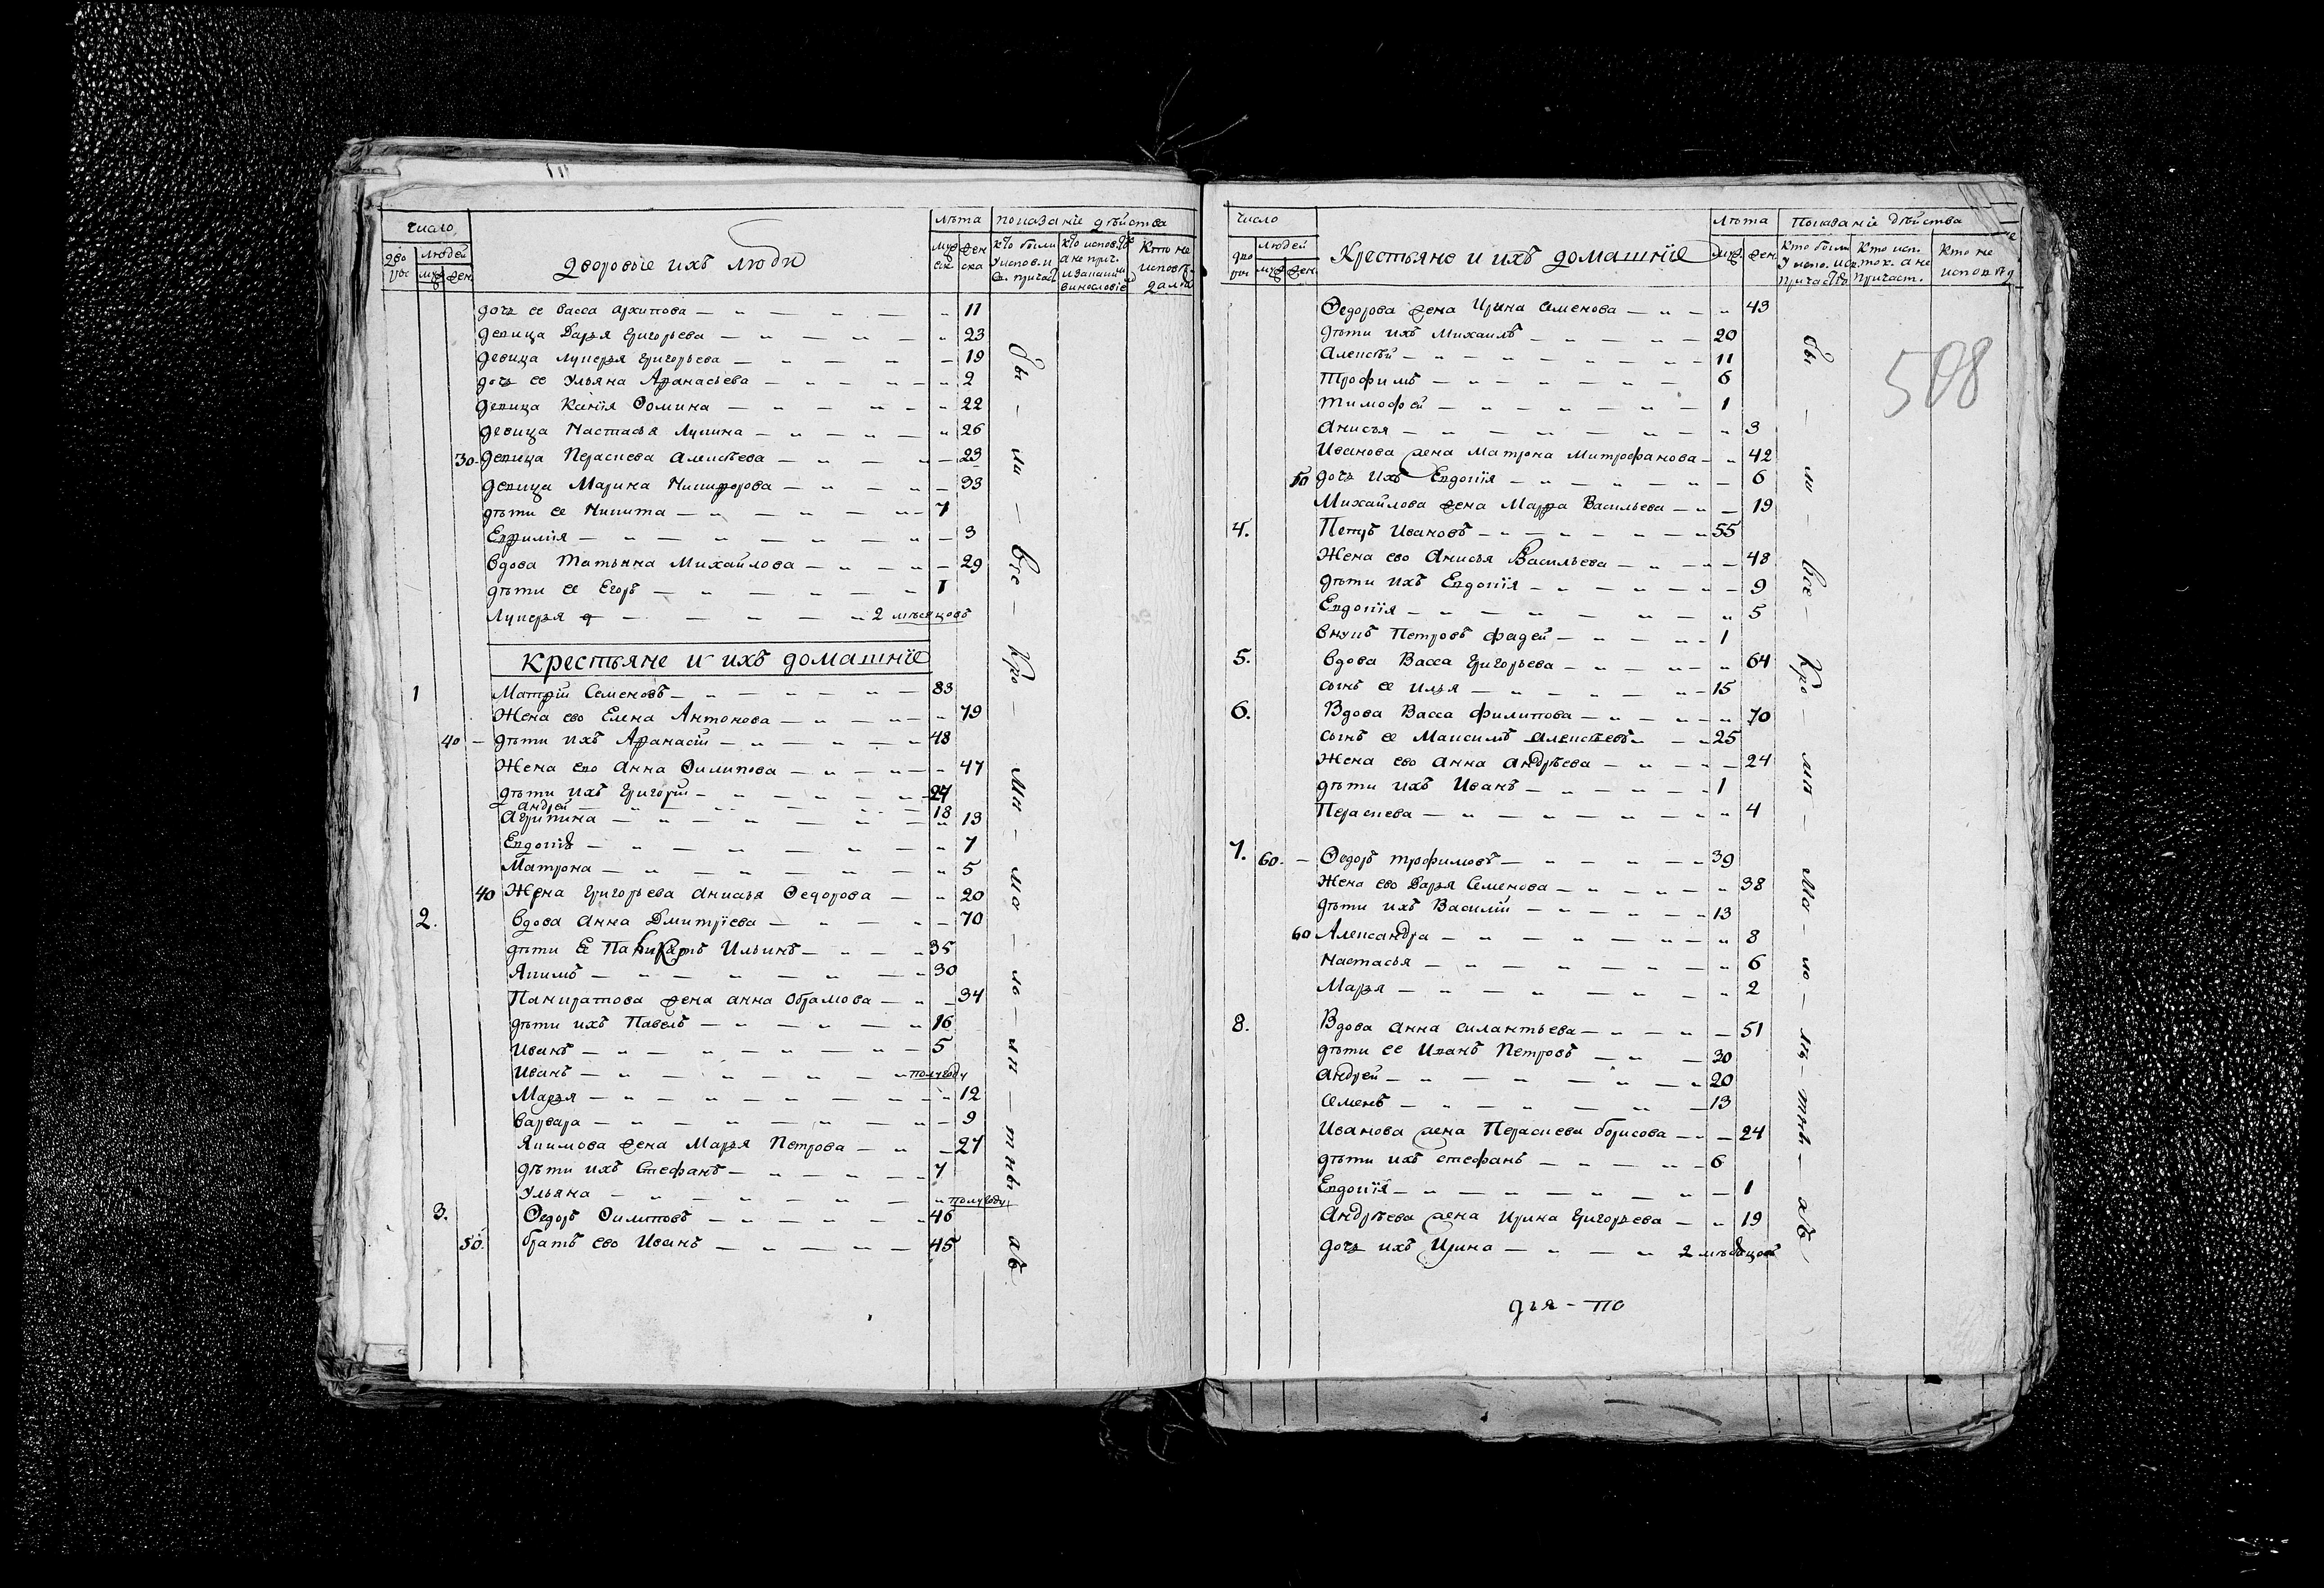 число
лѣта
показанїе дѣйства
дво ры
людей
муж
жен
дворовые ихъ люди
муж ска
жен ска
кто были у испов. и св. причас.
кто исповѣд. а не прич.
кто не исповѣ дался
дочь ее Васса Архипова — 11
девица Дарья Григорьева — 23
девица Лукерья Григорьева — 19
дочь ее Ульяна Афанасьева — 2
девица Ксенїя Ѳомина — 22
девица Настасья Лупина — 26
30 девица Параскева Алексѣева — 23
девица Марина Никифорова — 33
дѣти ее Никита — 7
Евфимїя — 3
вдова Татьяна Михайлова — 29
дѣти ее Егоръ — 1
Лукерья — 2 мѣсяцовъ
Крестьяне и ихъ домашнїе
1 Матфїй Семеновъ — 83
Жена ево Елена Антонова — 79
40 — дѣти ихъ Афанасїй — 48
Жена ево Анна Филипова — 47
дѣти ихъ Григорїй — 27
андрей — 18
Агрипина — 13
Евдокїя — 7
Матрона — 5
40 Жена Григорьева Анисья Ѳедорова — 20
2. вдова Анна Дмитрїева — 70
дѣти Ее Панкратъ Ильинъ — 35
Якимъ — 30
Панкратова жена анна Обрамова — 34
дѣти ихъ Павелъ — 16
Иванъ — 5
Иванъ — полугоду
Марья — 12
варвара — 9
Якимова жена Марья Петрова — 27
дѣти ихъ Стефанъ — 7
Ульяна — полугоду
3. Ѳедоръ Филиповъ — 46
50. братъ ево Иванъ — 45
бы — ли — все — кро — ми — мо — ло — лп — тнѣ ав
число
лѣта
Показанїе дѣйства
дво ры
людей
муж
жен
Крестьяне и ихъ домашнїе
муж.
жен
Кто были у испо. и св. причастїя
Кто исп. тох. а не причаст.
Кто не исповѣд
508
Ѳедорова жена Ирина Семенова — 43
дѣти ихъ Михаилъ — 20
Алексѣй — 11
Трофимъ — 6
Тимофей — 1
Анисья — 3
Иванова жена Матрона Митрофанова — 42
50 дочь ихъ Евдокїя — 6
Михайлова жена Марфа Васильева — 19
4. Петръ Ивановъ — 55
Жена ево Анисья Васильева — 48
дѣти ихъ Евдокїя — 9
Евдокїя — 5
внукъ Петровъ фадей — 1
5. вдова Васса Григорьева — 64
сынъ ее Илья — 15
6. Вдова Васса Филипова — 70
сынъ ее Максимъ Алексѣевъ — 25
Жена ево Анна Андрѣева — 24
дѣти ихъ Иванъ — 1
Параскева — 4
7. 60. — Ѳедоръ Трофимовъ — 39
Жена ево Дарья Семенова — 38
дѣти ихъ Василїй — 13
60 Александра — 8
Настасья — 6
Марья — 2
8. Вдова анна силантьева — 51
дѣти ее Иванъ Петровъ — 30
андрей — 20
Семенъ — 13
Иванова жена Параскева борисова — 24
дѣти ихъ стефанъ — 6
Евдокїя — 1
Андрѣева жена Ирина Григорьева — 19
дочь ихъ Ирина — 2 мѣсяцовъ
бы — ли — все — кро — мп — мо — ло — лѣ — тнѣ — авъ
дья - по